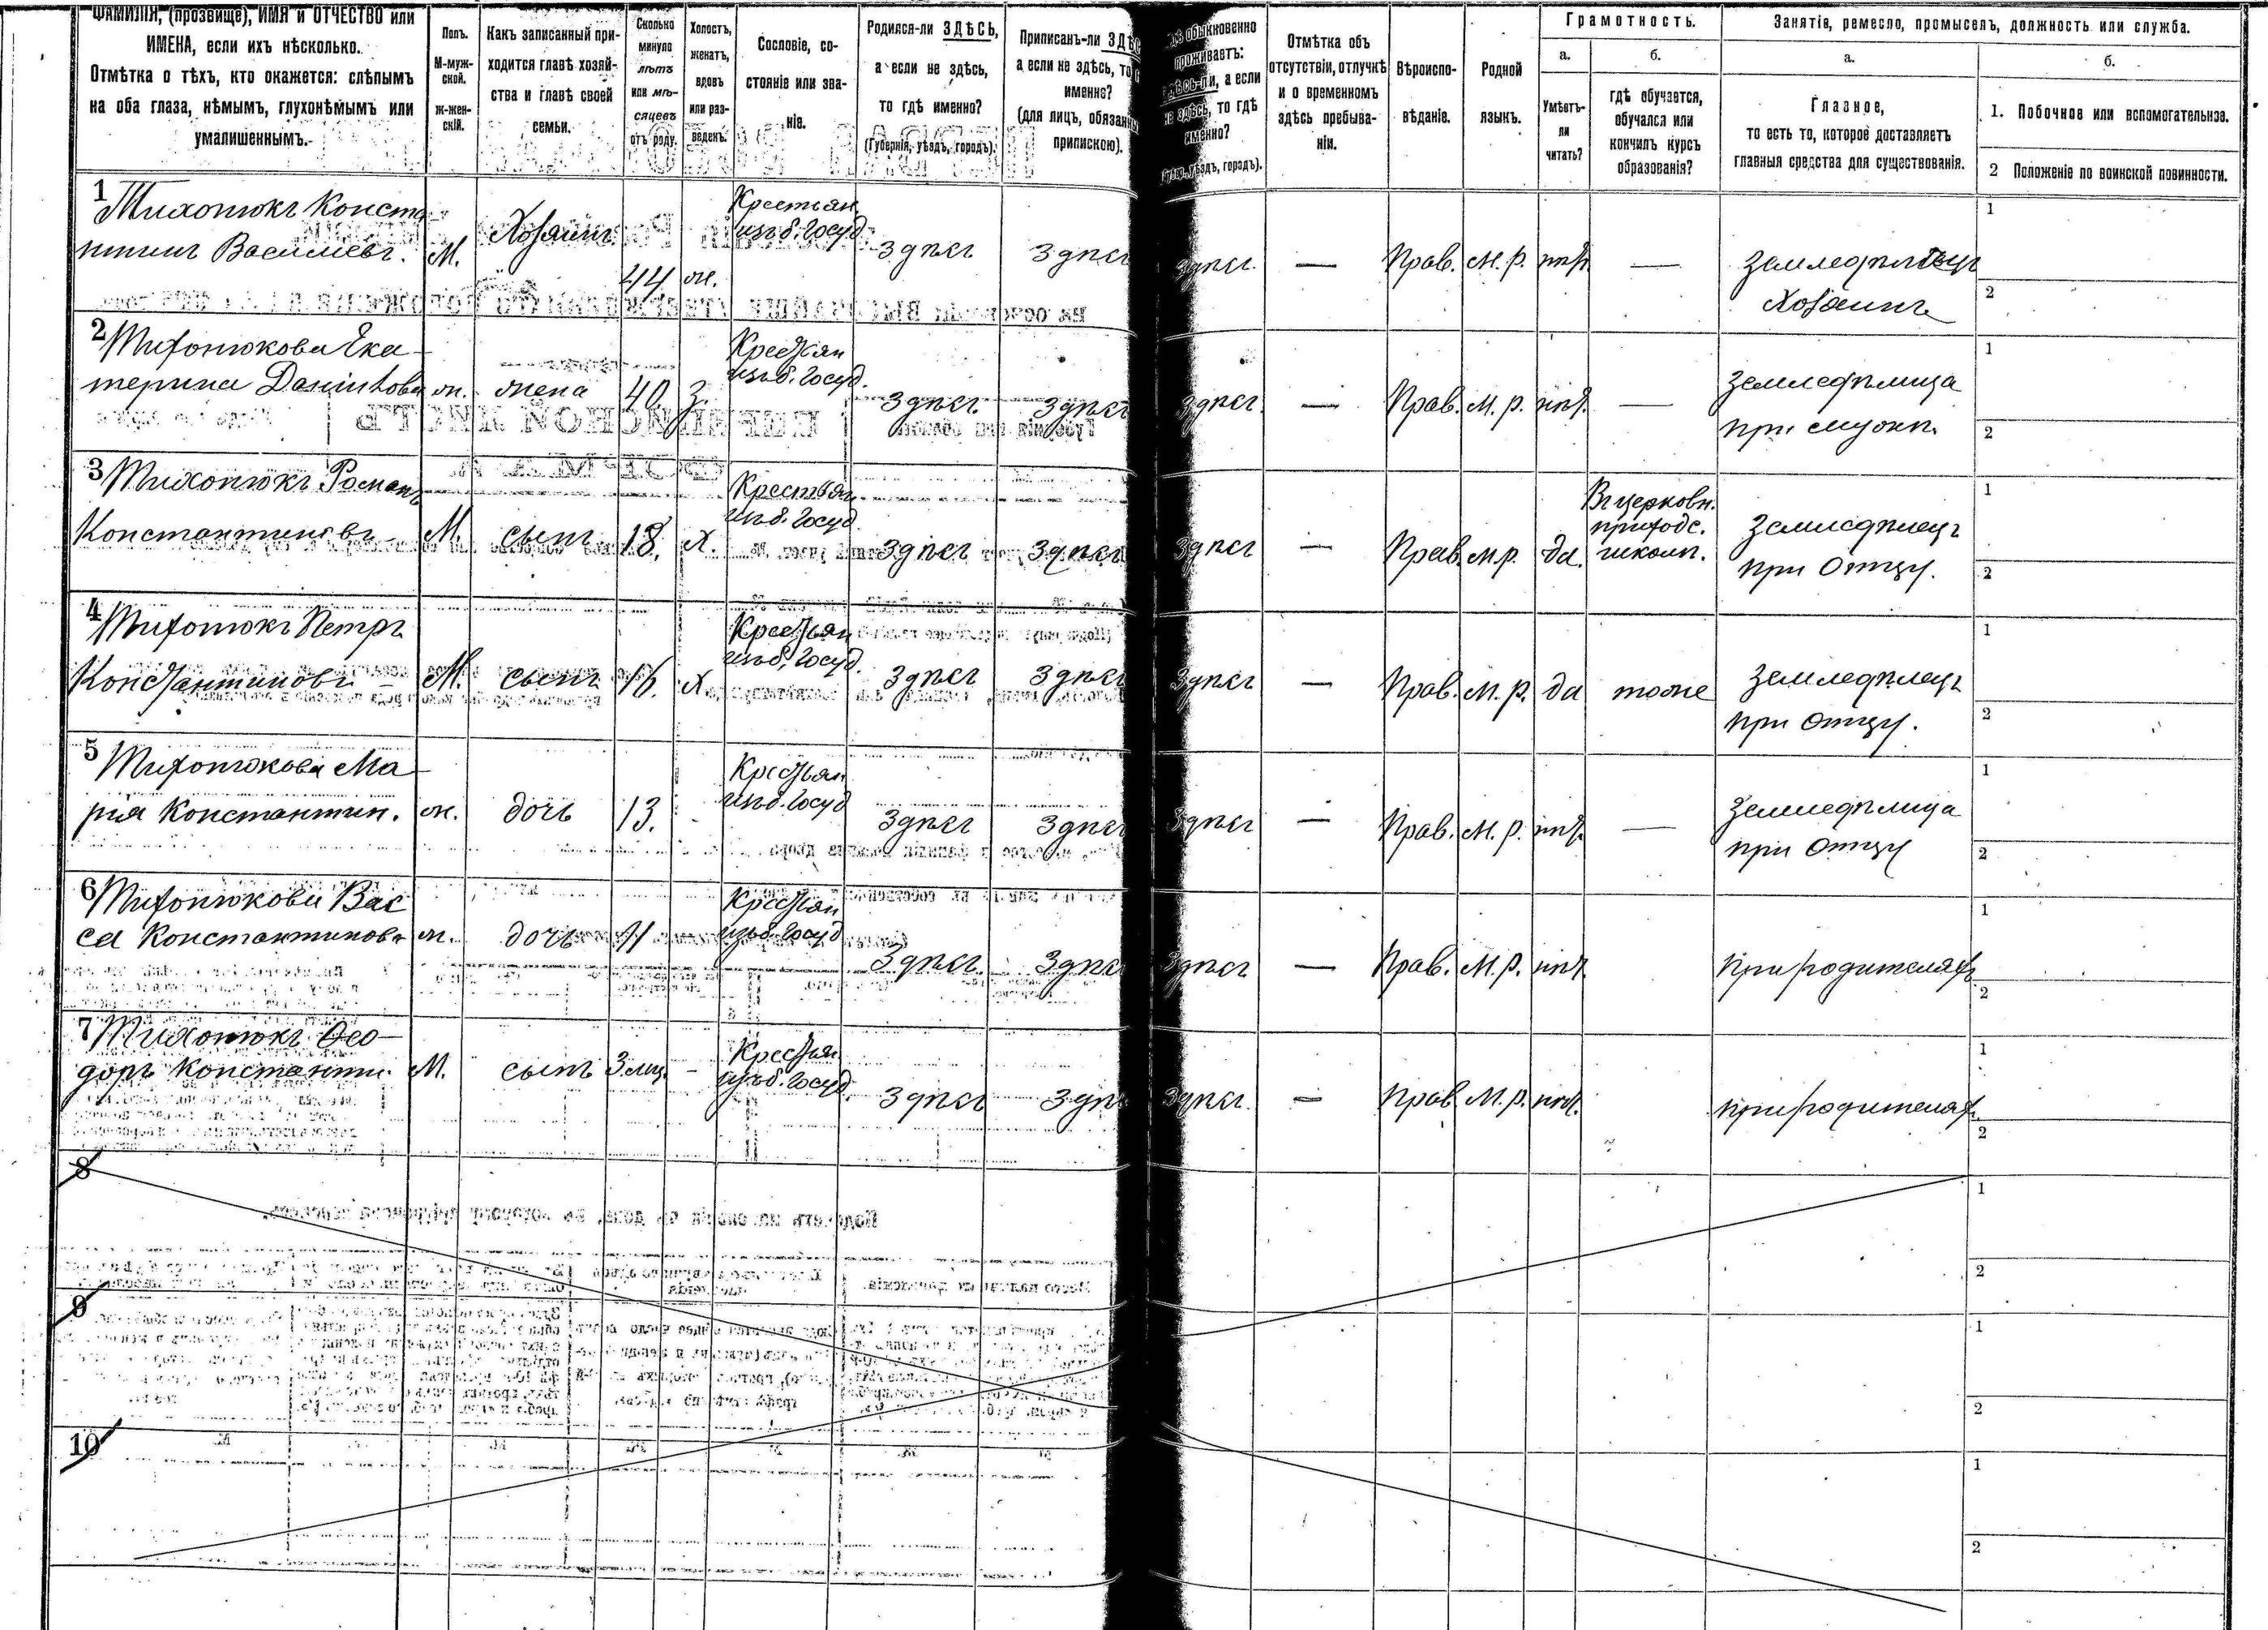 ФАМИЛІЯ, (прозвище), ИМЯ и ОТЧЕСТВО или
ИМЕНА, если ихъ нѣсколько.
Отмѣтка о тѣхъ, кто окажется: слѣпымъ
на оба глаза, нѣмымъ, глухонѣмымъ или
умалишеннымъ.
Полъ.
М-муж-
ской.
ж-жен-
скій.
Какъ записанный при-
ходится главѣ хозяй-
ства и главѣ своей
семьи.
Сколько
минуло
лѣтъ
или мѣ-
сяцевъ
отъ роду.
Холостъ,
женатъ,
вдовъ
или раз-
веденъ.
Сословіе, со-
стояніе или зва-
ніе.
Родился-ли ЗДѢСЬ,
а если не здѣсь,
то гдѣ именно?
(Губернія, уѣздъ, городъ).
Приписанъ-ли
а если не здѣсь, то
именно?
(для лицъ, обязан
припискою).
обыкновенно
проживаетъ:
а если
не здѣсь, то гдѣ
именно?
уѣздъ, городъ).
Отмѣтка объ
отсутствіи, отлучкѣ
и о временномъ
здѣсь пребыва-
ніи.
Вѣроиспо-
вѣданіе.
Родной
языкъ.
Грамотность.
а.
Умѣетъ-
ли
читать?
б.
гдѣ обучается,
обучался или
кончилъ курсъ
образованія?
Занятія, ремесло, промыселъ, должность или служба.
а.
Главное,
то есть то, которое доставляетъ
главныя средства для существованія.
б.
1. Побочное или вспомогательное.
2 Положеніе по воинской повинности.
1
Тихонюкъ Конста
нтинъ Васильевъ.
М.
Хозяинъ
44
ж.
Крестьян
изъ б. госуд
Здѣсь
Здѣсь
Здѣсь.
—
Прав.
М. р.
нѣт
—
Земледѣлецъ
Хозяинъ
1
2
2
Тихонюкова Ека-
терина Данилова
ж.
жена
40
з.
Крестьян
изъ б. госуд.
Здѣсь.
Здѣсь
Здѣсь.
—
Прав.
М. р.
нѣт.
—
Земледѣлица
при мужѣ.
1
2
3
Тихонюкъ Романъ
Константиновъ
М.
сынъ
18.
х.
Крестьян
изъ б. госуд.
Здѣсь
Здѣсь
Здѣсь
—
Прав.
М. р.
да.
Въ церковн.
приходс.
школѣ.
Земледѣлецъ
при Отцу.
1
2
4
Тихонюкъ Петръ
Константиновъ
М.
сынъ
16.
х.
Крестьян
изъ б. госуд.
Здѣсь
Здѣсь
Здѣсь
—
Прав.
М. р.
да
тоже
Земледѣлецъ
при Отцу.
1
2
5
Тихонюкова Ма
рія Константин.
ж.
дочь
13.
Крестьян
изъ б. госуд
Здѣсь
Здѣсь
Здѣсь
—
Прав.
М. р.
нѣт
—
Земледѣлица
при Отцу
1
2
6
Тихонюкова Вас
са Константинова
ж.
дочь
11
Крестьян
изъ б. госуд
Здѣсь.
Здѣсь
Здѣсь
—
Прав.
М. р.
нѣт
при родителяхъ
1
2
7
Тихонюкъ Ѳео-
доръ Константи.
М.
сынъ
3 мц.
-
Крестьян
изъ б. госуд.
Здѣсь
Здѣсь
Здѣсь.
—
Прав
М. р.
нѣт.
при родителях.
1
2
8
1
2
9
1
2
10
1
2